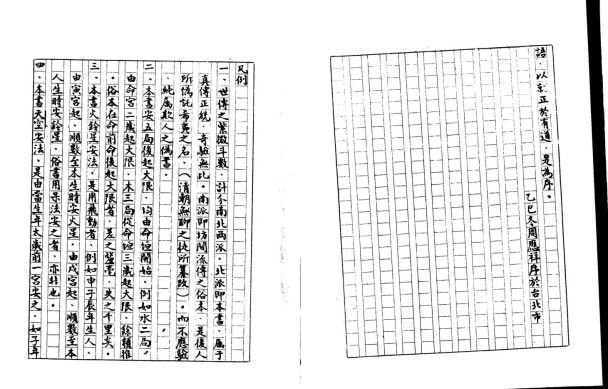 語、以就正於有道、是為序。
乙巳冬周應祥序於台北市
凡例
一、世傳之紫微斗數、計分南北兩派、北派即本書、屬于
真傳正統、奇驗無比。南派即坊間流傳之俗本、是後人
所偽託希夷之名、(清朝無聊之徒所纂改)。而不應驗
、純屬欺人之偽書。
二、本書安五局後起大限、均由命垣開始、例如水二局。
由命宮二歲起大限、木三局從命垣三歲起大限、餘類推
。俗本在命前命後起大限者、差之毫毫、失之千里矣。
三、本書火鈴星安法、是用飛動者、例如申子辰年生人、
由寅宮起、順數至本生時安火星、由戌宮起、順數至本
人生時安鈴星、俗書用呆法安之者、亦非也。
四、本書天空安法、是由當生年太歲前一宮安之、如子年